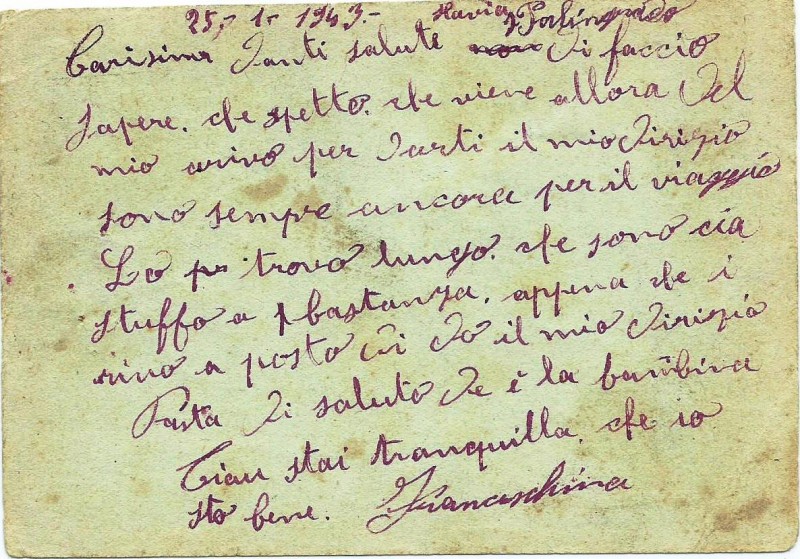 25,- 1- 1943.- Slavia
Carisima Tanti salute Ti faccio
sapere, che spetto, che viene allora del
mio arivo per darti il mio dirizio
sono sempre ancora per il viaggio
Lo trovo lungo, che sono cia
stuffo a bastanza, appena che i
rivo a posto vi do il mio dirizio
Pasta Ti saluto Te e la bambina
Ciau stai tranquilla, che io
sto bene. Franceschina